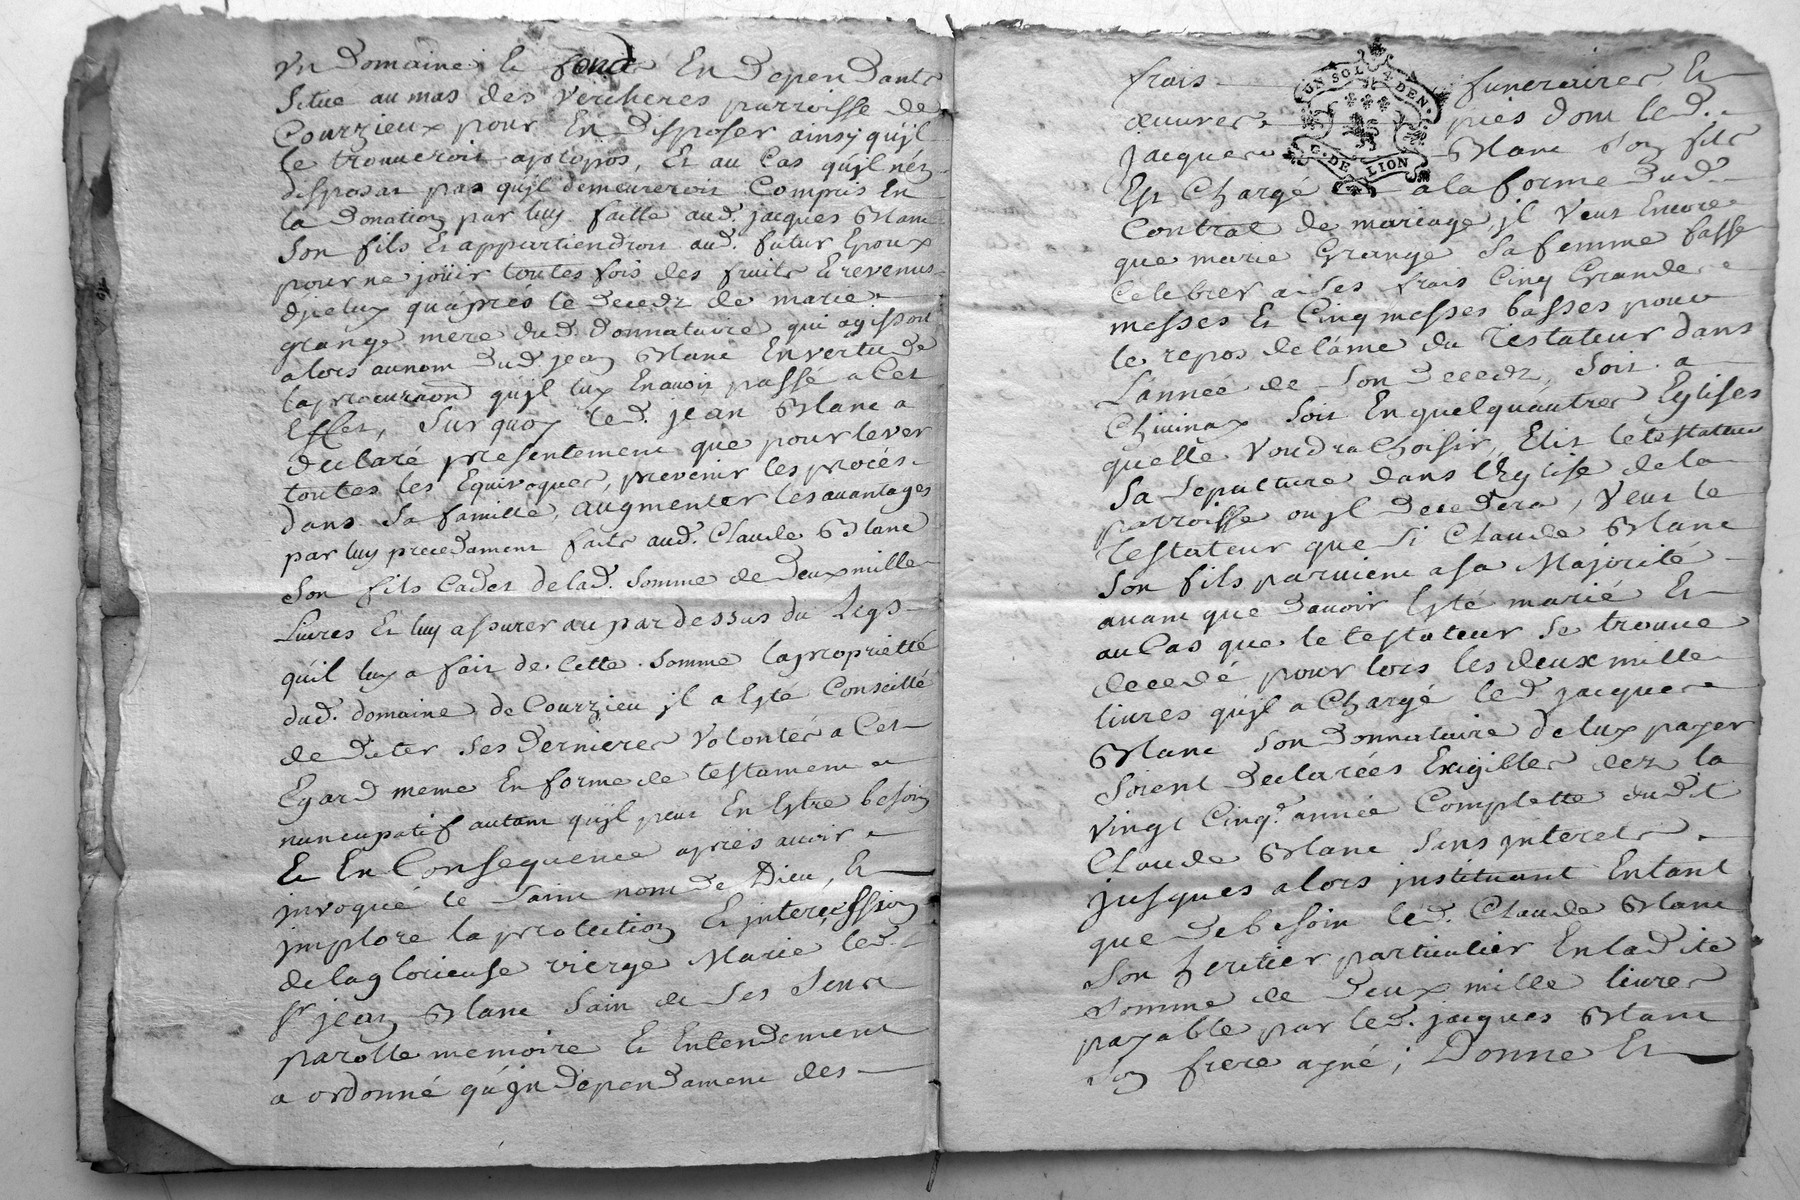 Un domaine & fonds En dependants
Situe au mas des vercheres parroisse de
Courzieux pour En disposer ainsy qujl
le trouueroit apropos, Et au Cas qujl nén
disposat pas qujl demeureroit Compris En
la donation par luy faitte aud. jacques Blanc
Son fils Et appartiendroit aud. futur Epoux
pour ne joüir toutes fois des fruits & revenus
djceux quaprés le decedz de marie
grange mere dud. donnataire qui agissoit
alors au nom dud jean Blanc En vertu de
la procuraõn qujl luy En auoit passé a Cet
Effet, Sur quoy led. jean Blanc a
declaré presentement que pour lever
toutes les Equivoques, prevenir les procés
dans Sa famille, augmenter les auantages
par luy precedament faits aud. Claude Blanc
Son fils Cadet de lad. Somme de deux mille
Livres Et luy assurer au par dessus du Legs
qu'il luy a fait de Cette Somme la proprietté
dud. domaine de Courzieu jl a Esté Conseillé
de dicter Ses dernieres Volontés a Cet
Egard meme En forme de testament
nuncupatif autant qujl peut En Estre besoin
& En Consequence aprés auoir
jnvoqué le Saint nom de Dieu, Et
jmploré la protection & jntercession
de la glorieuse vierge Marie led.
Sr jean Blanc Sain de Ses Sens
parolle memoire & Entendement
a ordonné qu'jndépendament des
frais funeraires Et
œuures pies dont led.
jacques Blanc Son fils
Est Chargé a la forme dud
Contrat de mariage, jl Veut Encore
que marie Grange Sa femme fasse
Celebrer a Ses frais Cinq Grandes
messes Et Cinq messes basses pour
le repos de l'ame du Testateur dans
L'année de Son decedz, Soit a
Chiuinax Soit En quelquautres Eglises
quelle Voudra Choisir, Elit le testateur
Sa Sepulture dans l'Eglise de la
parroisse ou jl decedera, Veut le
testateur que Si Claude Blanc
Son fils paruient a sa Majorité
auant que dauoir Esté marié Et
au Cas que le testateur Se trouue
decedé pour lors les deux mille
liures qujl a Chargé led. jacques
Blanc Son donnataire de luy payer
Soient declarées Exigibles dez la
vingt Cinq.e année Complette dudit
Claude Blanc Sans jnterets
jusques alors jnstituant Entant
que de besoin led. Claude Blanc
Son heritier particulier En ladite
Somme de deux mille liures
payable par led. jacques Blanc
Son frere ayné; Donne Et
UN SOL 4 DEN.
G. DE LION